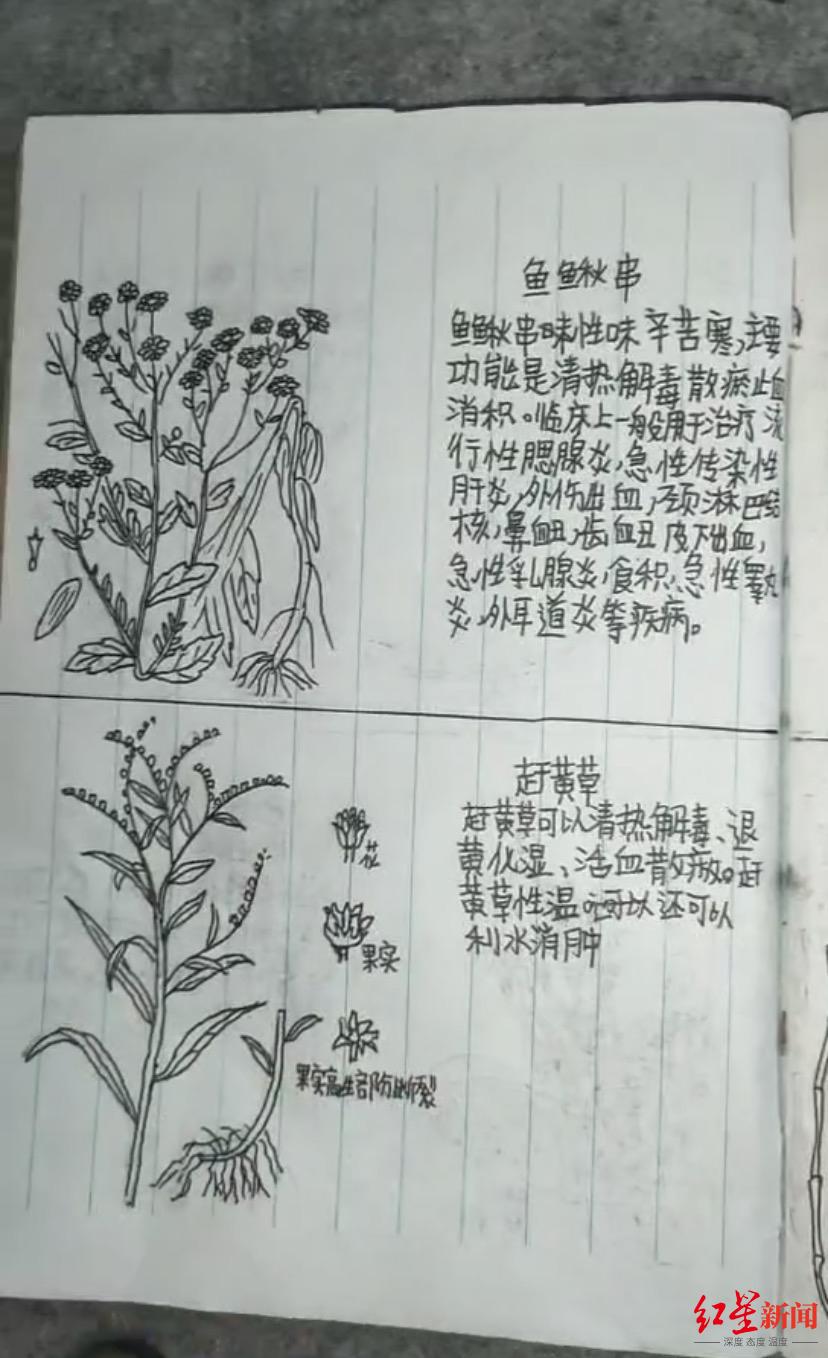 鱼鳅串
鱼鳅串味性味辛苦寒,主要
功能是清热解毒散瘀止血
消积。临床上一般用于治疗流
行性腮腺炎,急性传染性
肝炎,外伤出血,颈淋巴结
核,鼻衄,齿衄皮下出血,
急性乳腺炎,食积,急性睾丸
炎,外耳道炎等疾病。
赶黄草
赶黄草可以清热解毒、退
黄化湿、活血散瘀。赶
黄草性温。还可以
利水消肿
花
果实
果实
红星新闻
深度 态度 温度